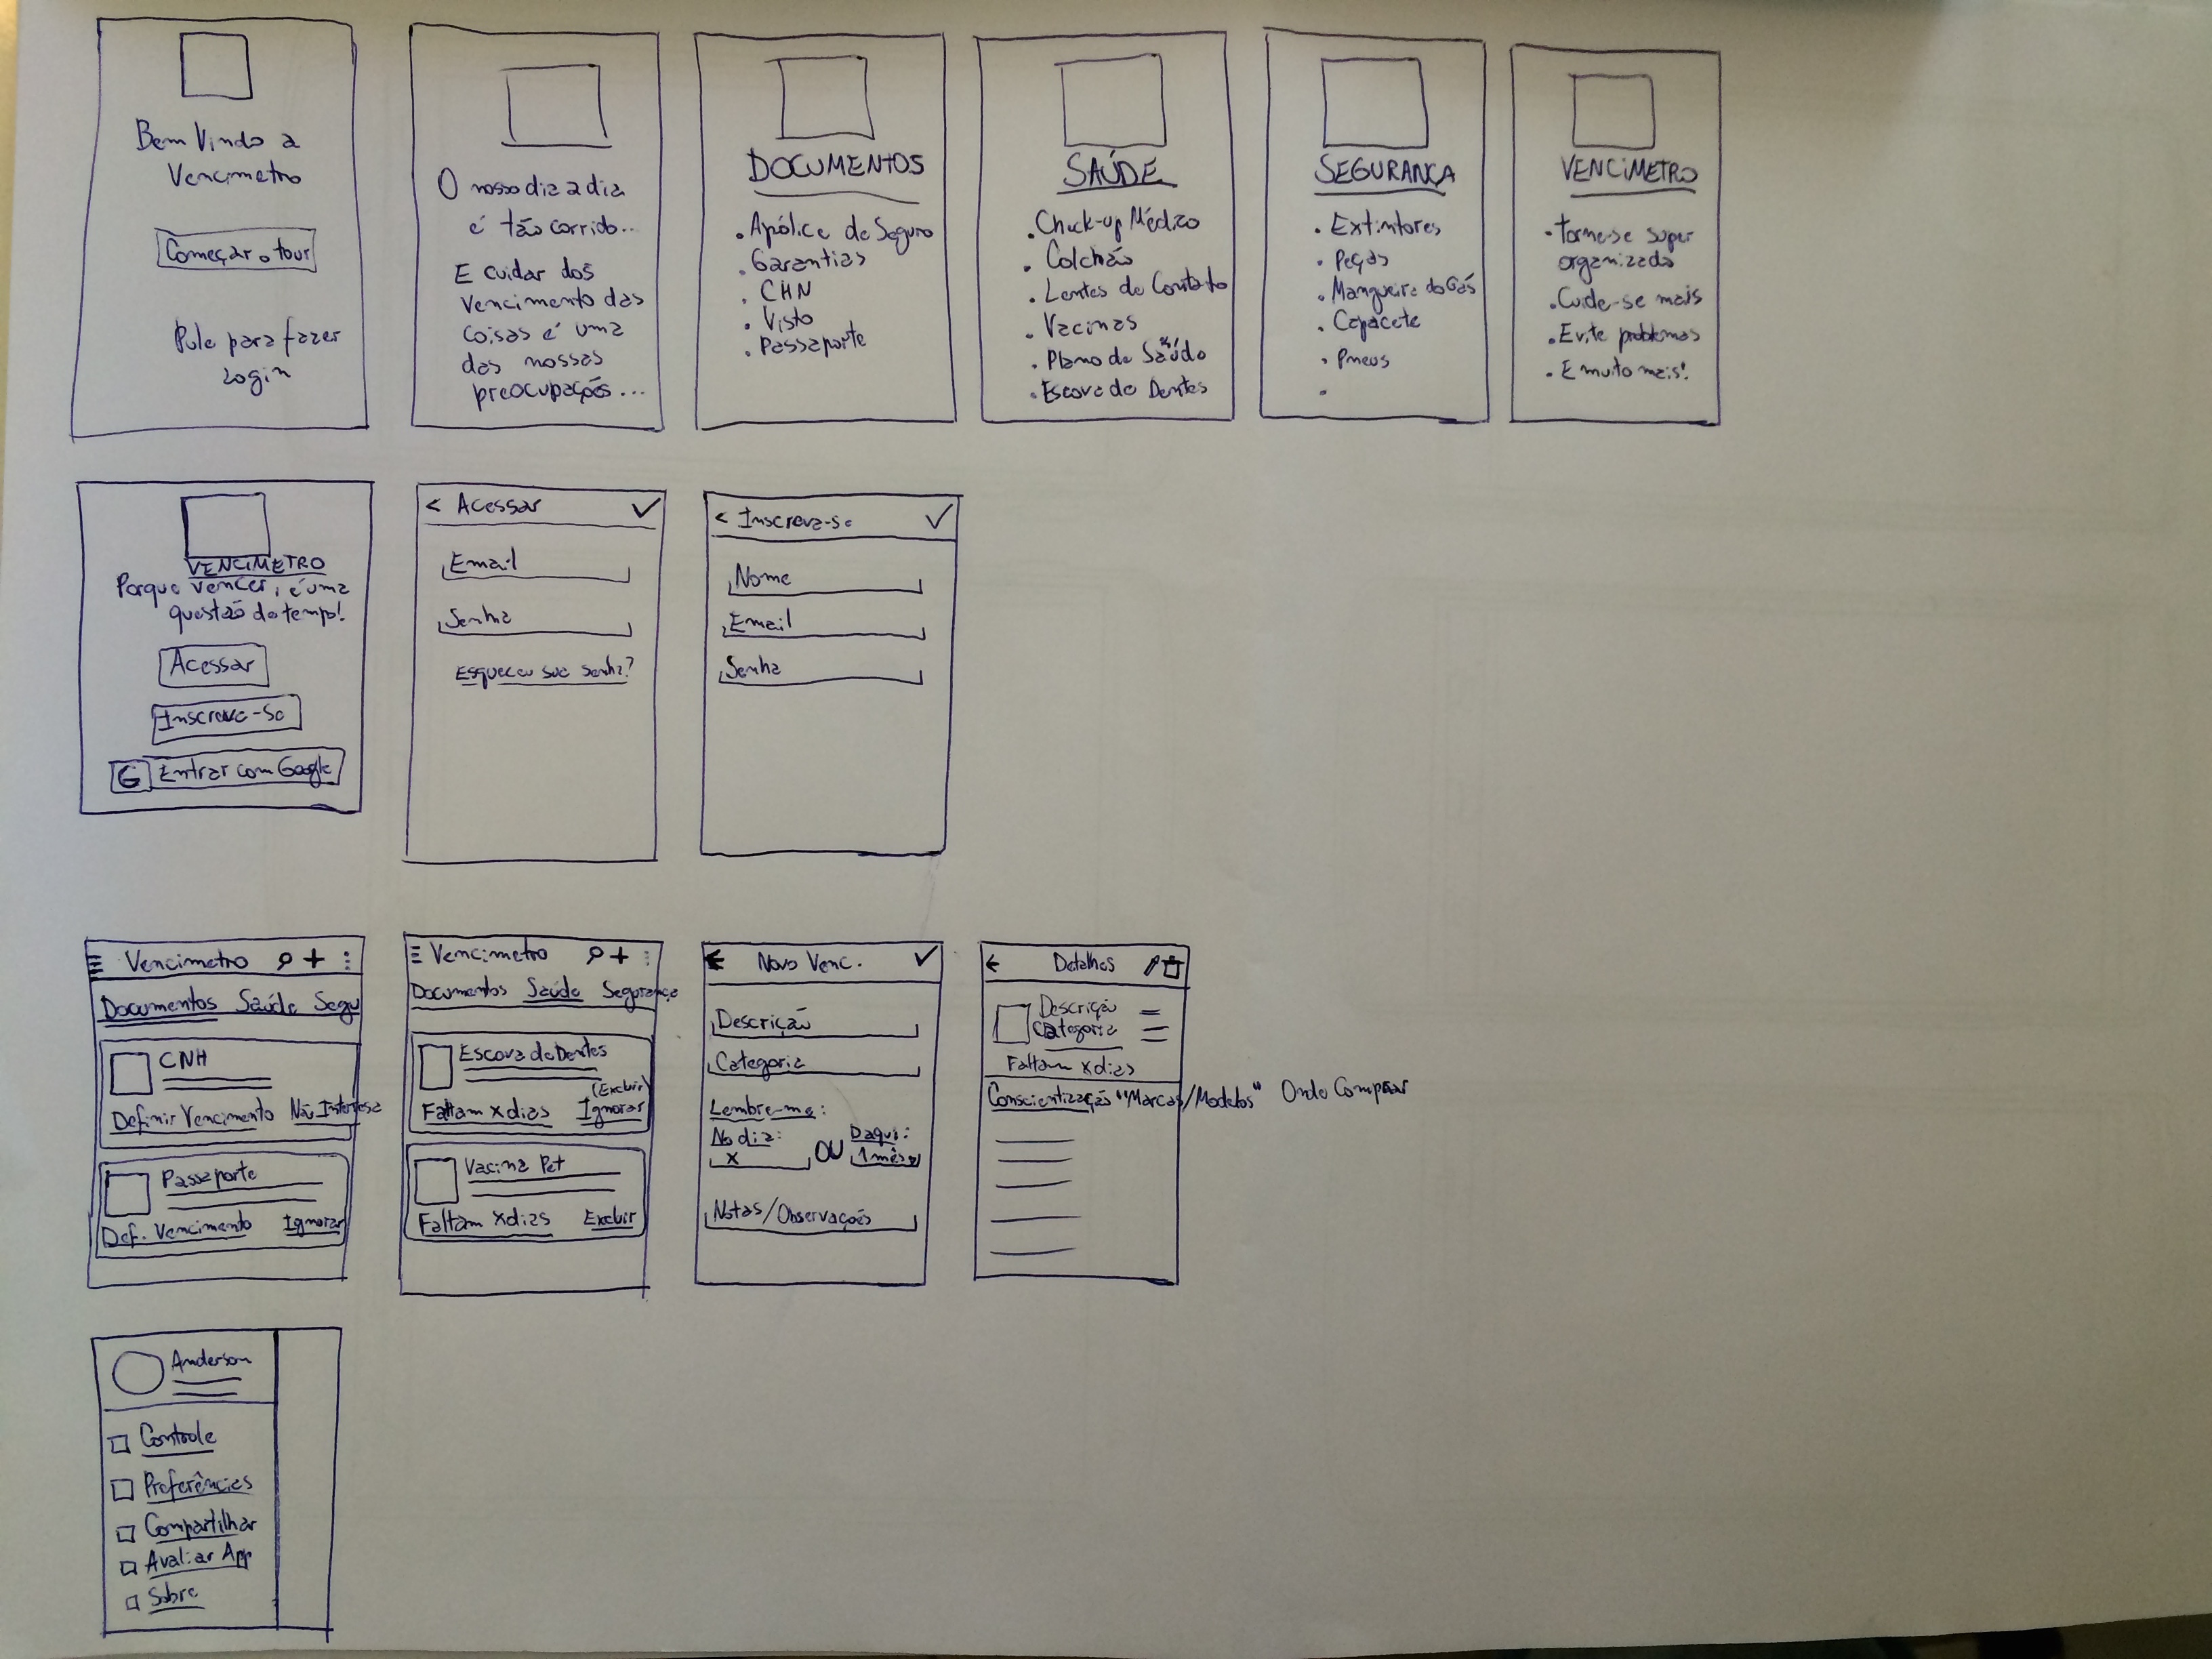 Bem Vindo a
Vencimetro
Começar o tour
Pule para fazer
Login
O nosso dia a dia
é tão corrido...
E cuidar dos
vencimento das
coisas é uma
das nossas
preocupações...
DOCUMENTOS
• Apólice de Seguro
• Garantias
• CHN
• Visto
• Passaporte
SAÚDE
• Check-up Médico
• Colchão
• Lentes de Contato
• Vacinas
• Plano de Saúde
• Escova de Dentes
SEGURANÇA
• Extintores
• Peças
• Mangueira do Gás
• Capacete
• Pneus
•
VENCIMETRO
• Torne-se super
organizado
• Cuide-se mais
• Evite problemas
• E muito mais!
VENCIMETRO
Porque vencer, é uma
questão de tempo!
Acessar
Inscreva-se
G Entrar com Google
< Acessar ✓
Email
Senha
Esqueceu sua senha?
< Inscreva-se ✓
Nome
Email
Senha
Vencimetro +
Documentos Saúde Segu
CNH
Definir Vencimento Não Interessa
Passaporte
Def. Vencimento Ignorar
Vencimetro +
Documentos Saúde Segurança
Escova de Dentes
(Excluir)
Faltam x dias Ignorar
Vacina Pet
Faltam x dias Excluir
← Novo Venc. ✓
Descrição
Categoria
Lembre-me:
No dia: OU Daqui:
x 1 mês
Notas/Observações
← Detalhes
Descrição
Categoria
Faltam x dias
Conscientização "Marcas/Modelos" Onde Comprar
Anderson
Controle
Preferências
Compartilhar
Avaliar App
Sobre